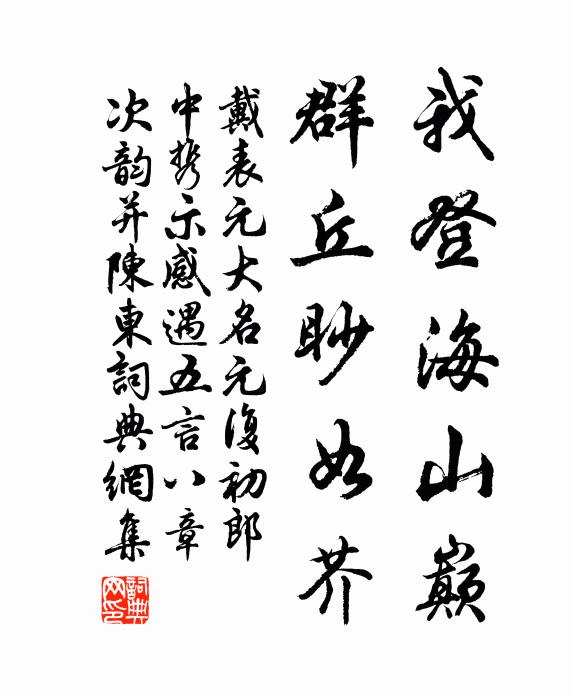 我登海山巔
群丘眇如芥
戴表元大名元復初郎
中携示感遇五言八章
次韵并陳東詞典網集
詞典网印